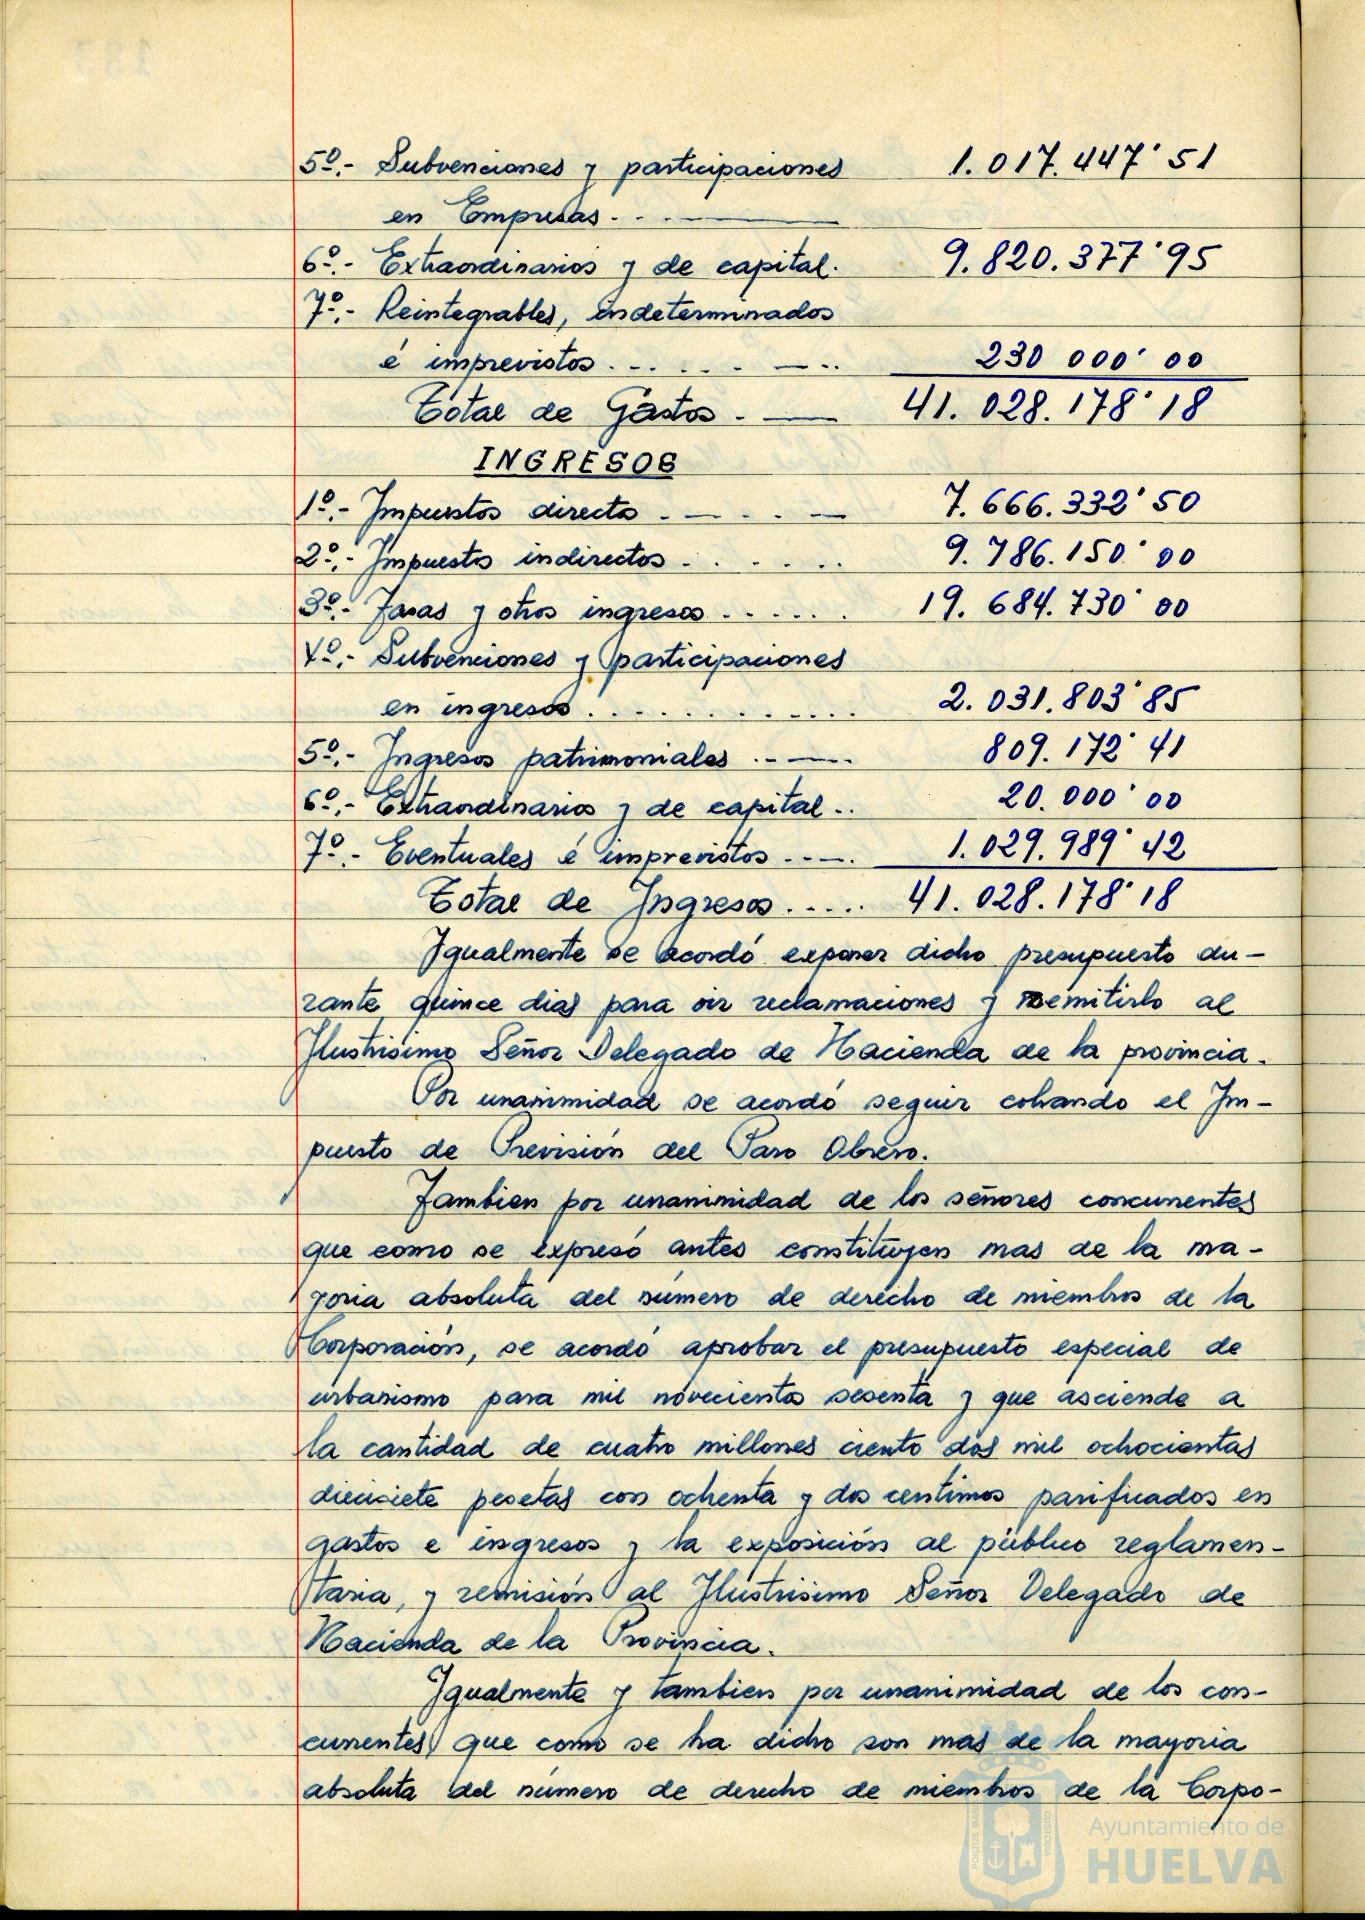 5º.- Subvenciones y participaciones 1.017.447'51
en Empresas. . .
6º.- Extraordinarios y de capital. 9.820.377'95
7º.- Reintegrables, indeterminados
é imprevistos . . . . . . 230 000'00
Total de Gastos . 41.028.178'18
INGRESOS
1º.- Impuestos directo . . . 7.666.332'50
2º.- Impuestos indirectos . . . . . . 9.786.150'00
3º.- Tasas y otros ingresos . . . . . . 19.684.730'00
4º.- Subvenciones y participaciones
en ingresos . . . . . . . . . . . . 2.031.803'85
5º.- Ingresos patrimoniales . . 809.172'41
6º.- Extraordinarios y de capital . . 20.000'00
7º.- Eventuales é imprevistos . . . 1.029.989'42
Total de Ingresos . . . . . 41.028.178'18
Igualmente se acordó exponer dicho presupuesto du-
rante quince dias para oir reclamaciones y remitirlo al
Ilustrisimo Señor Delegado de Hacienda de la provincia.
Por unanimidad se acordó seguir cobrando el Im-
puesto de Previsión del Paro Obrero.
Tambien por unanimidad de los señores concurrentes
que como se expresó antes constituyen mas de la ma-
yoria absoluta del número de derecho de miembros de la
Corporación, se acordó aprobar el presupuesto especial de
urbanismo para mil novecientos sesenta y que asciende a
la cantidad de cuatro millones ciento dos mil ochocientas
diecisiete pesetas con ochenta y dos centimos parificados en
gastos e ingresos y la exposición al público reglamen-
taria, y remisión al Ilustrisimo Señor Delegado de
Hacienda de la Provincia.
Igualmente y tambien por unanimidad de los con-
currentes que como se ha dicho son mas de la mayoria
absoluta del número de derecho de miembros de la Corpo-
Ayuntamiento de
HUELVA